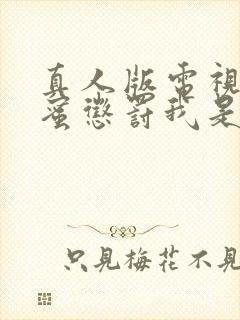 真人版電視
蜜懲罰我是
只見梅花不見